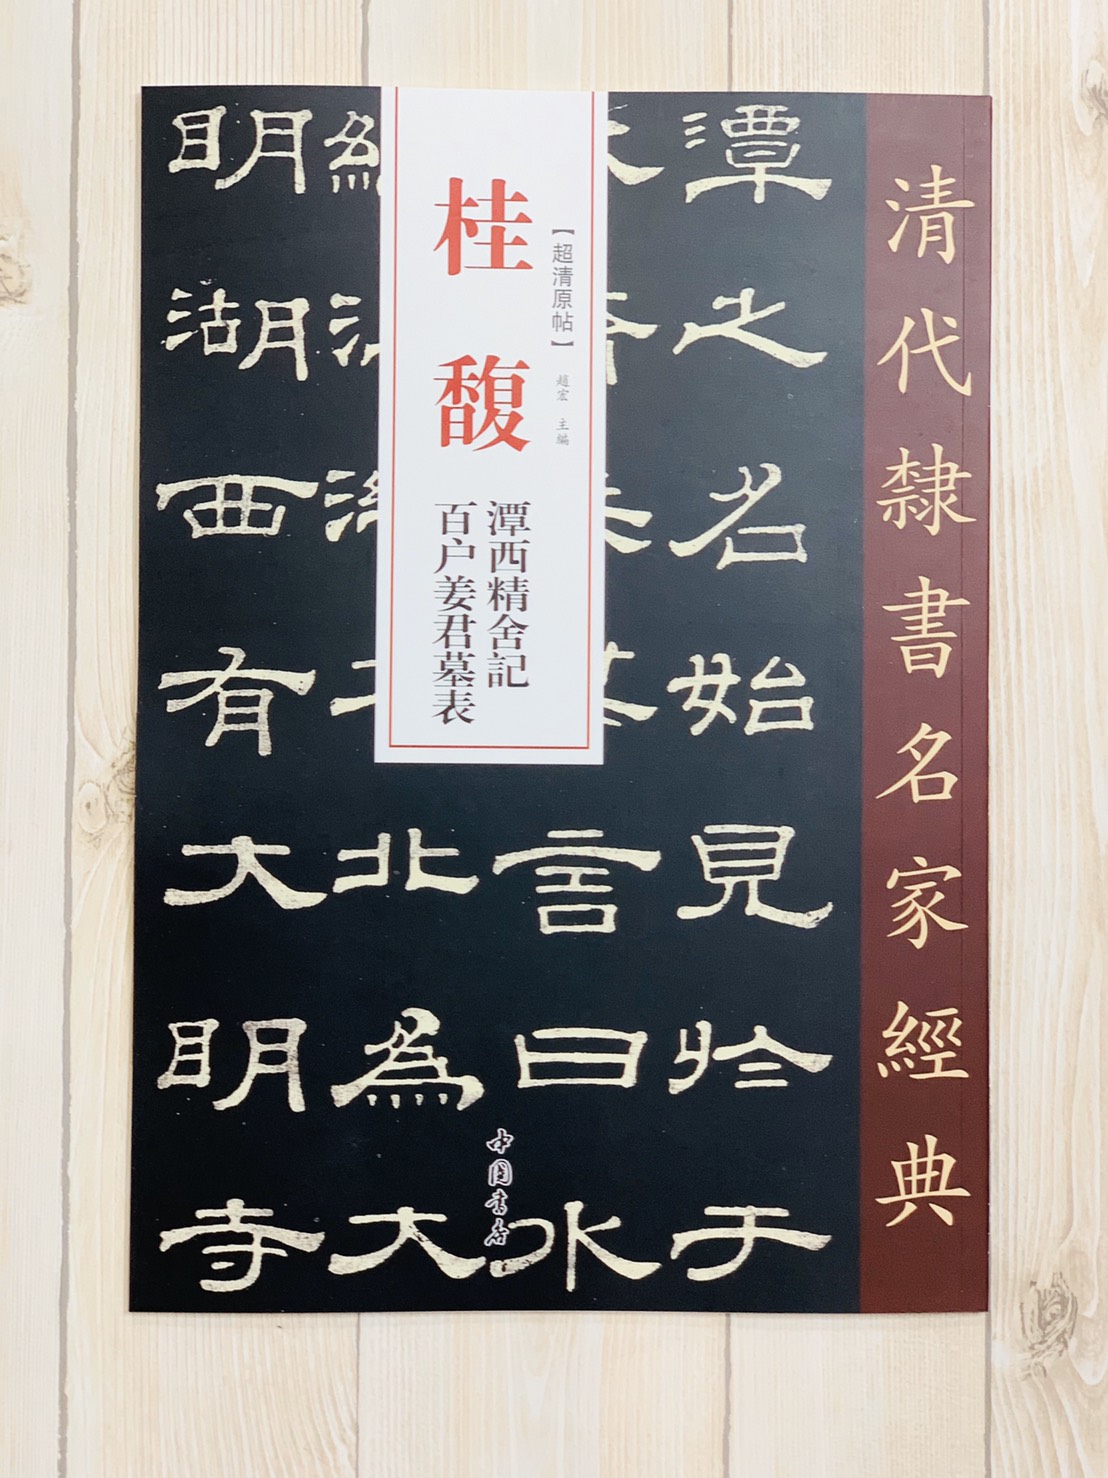 清代隸書名家經典
【超清原帖】
趙宏 主編
桂馥
潭西精舍記
百户姜君墓表
潭之名始見於于
言曰水
北為大
明湖西有大明寺
中國書店